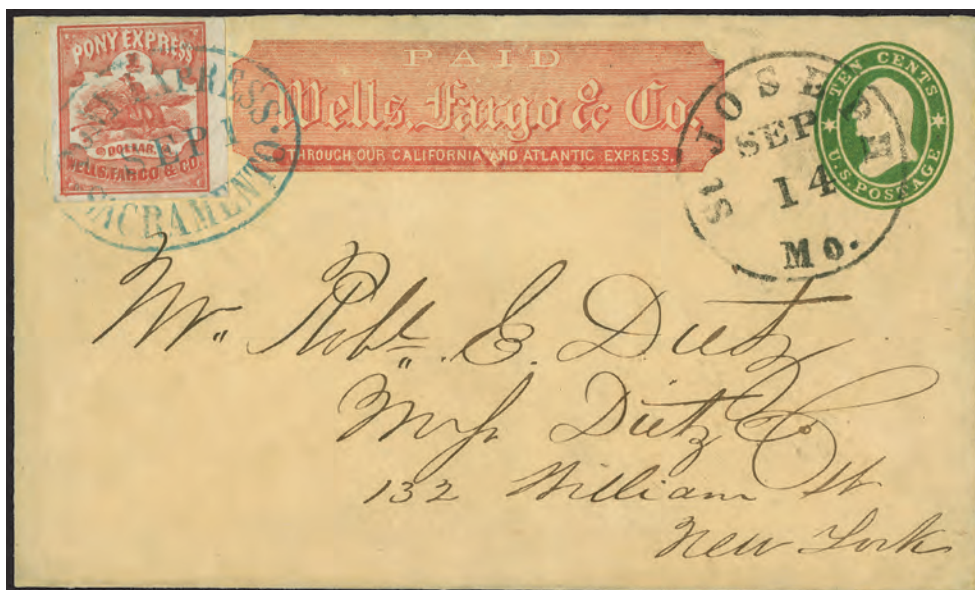 PONY EXPRESS
1
DOLLAR.
WELLS, FARGO & CO.
PONY EXPRESS.
SEP 1
SACRAMENTO.
PAID
Wells, Fargo & Co.
THROUGH OUR CALIFORNIA AND ATLANTIC EXPRESS.
ST JOSEPH
SEP
14
Mo.
TEN CENTS
U.S. POSTAGE
Mr. Robt. E. Dietz
Messrs Dietz & Co
132 William St
New York